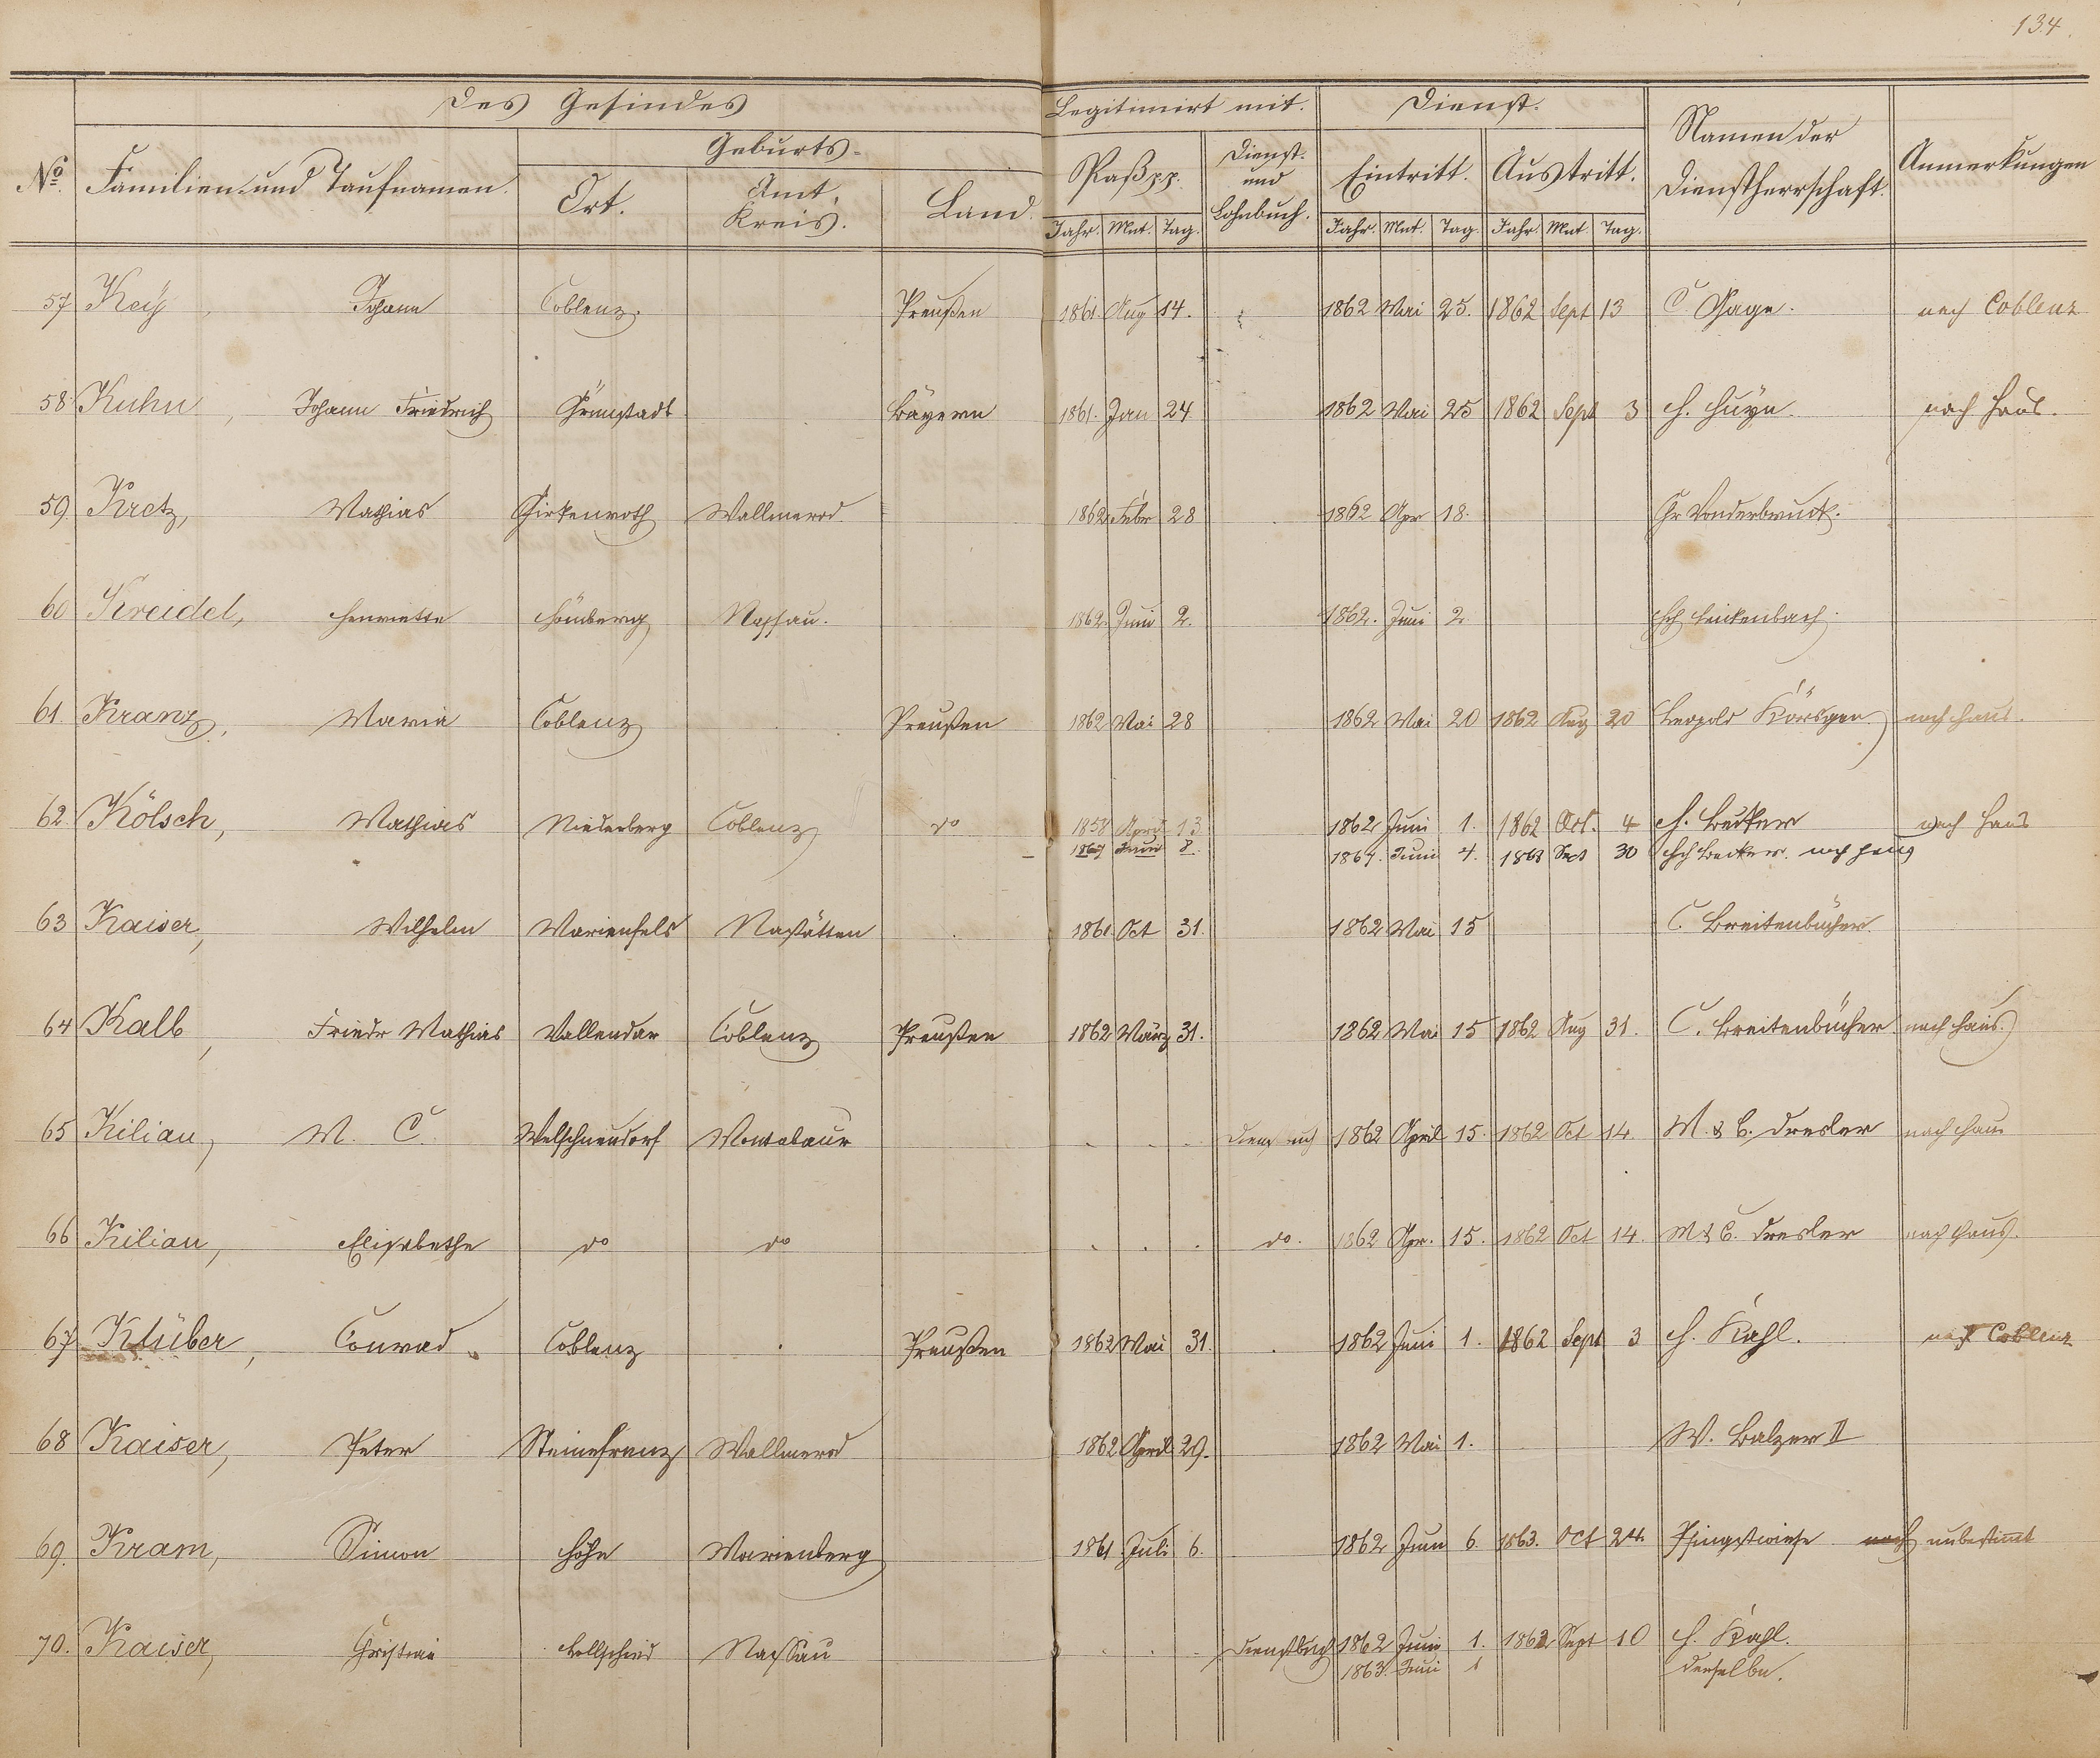 134.
Des Gesindes
Legitimirt mit.
Dienst.
Namen der Dienstherrschaft.
Anmerkungen
No. Familien und Taufnamen.
Geburts-
Ort. Amt, Kreis. Land.
Paß pp. Dienst- und Lohnbuch. Eintritt. Austritt.
Jahr. Mnt. Tag. Jahr. Mnt. Tag. Jahr. Mnt. Tag.
57 Keÿ, Johann Coblenz. Preußen 1861. Aug 14. 1862 Mai 25. 1862 Sept 13 C. nach Coblenz
58 Kuhn, Johann Friedrich Grünstadt Bayern 1861. Jan 24 1862 Mai 25 1862 Sept 3 H. nach Haus.
59. Kretz, Mathias Girkenroth Wallmerod. 1862 Febr 28 1862 Apr 18. Vonderbruck.
60 Kreidel, Henriette Hömberg Nassau. 1862. Juni 2. 1862. Juni 2. Hch Linkenbach.
61. Kranz, Maria Coblenz Preußen 1862 Mai 28 1862 Mai 20 1862 Aug 20 Leopold Körsgen nach Haus.
62. Kölsch, Mathias Niederberg Coblenz do 1858 April 13 1862 Juni 1. 1862 Oct. 4 H. Becker nach Haus
1867 Juni 8. 1867. Juni 4. 1868 Sept 30 Hch Becker. nach Haus
63 Kaiser, Wilhelm Marienfels Nastätten 1861. Oct 31. 1862 Mai 15 C. Breitenbücher.
64 Kalb, Friedr Mathias Vallendar Coblenz Preußen 1862 März 31. 1862 Mai 15 1862 Aug 31. C. Breitenbücher nach Haus.
65 Kilian, M. C. Welschneudorf Montabaur 1862 April 15. 1862 Oct 14. M. & C. Dresler nach Haus
66 Kilian, Elisabethe do do do. 1862 Apr. 15. 1862 Oct 14. M & C. Dresler nach Haus.
67 Klüber, Conrad Coblenz Preußen 1862 Mai 31. 1862 Juni 1. 1862 Sept 3 H. Kahl. nach Coblenz
68 Kaiser, Peter Steinefrenz Wallmerod 1862 April 29. 1862 Mai 1. W. Balzer II
69. Kram, Simon Höhn Marienberg 1861 Juli 6. 1862 Juni 6. 1863. Oct 24. Pfingstwiese nach unbestimt
70. Kaiser, Christian Nassau Dienstbuch 1862 Juni 1. 1862 Sept 10 H. Kahl.
1863. Juni 1 derselbe.